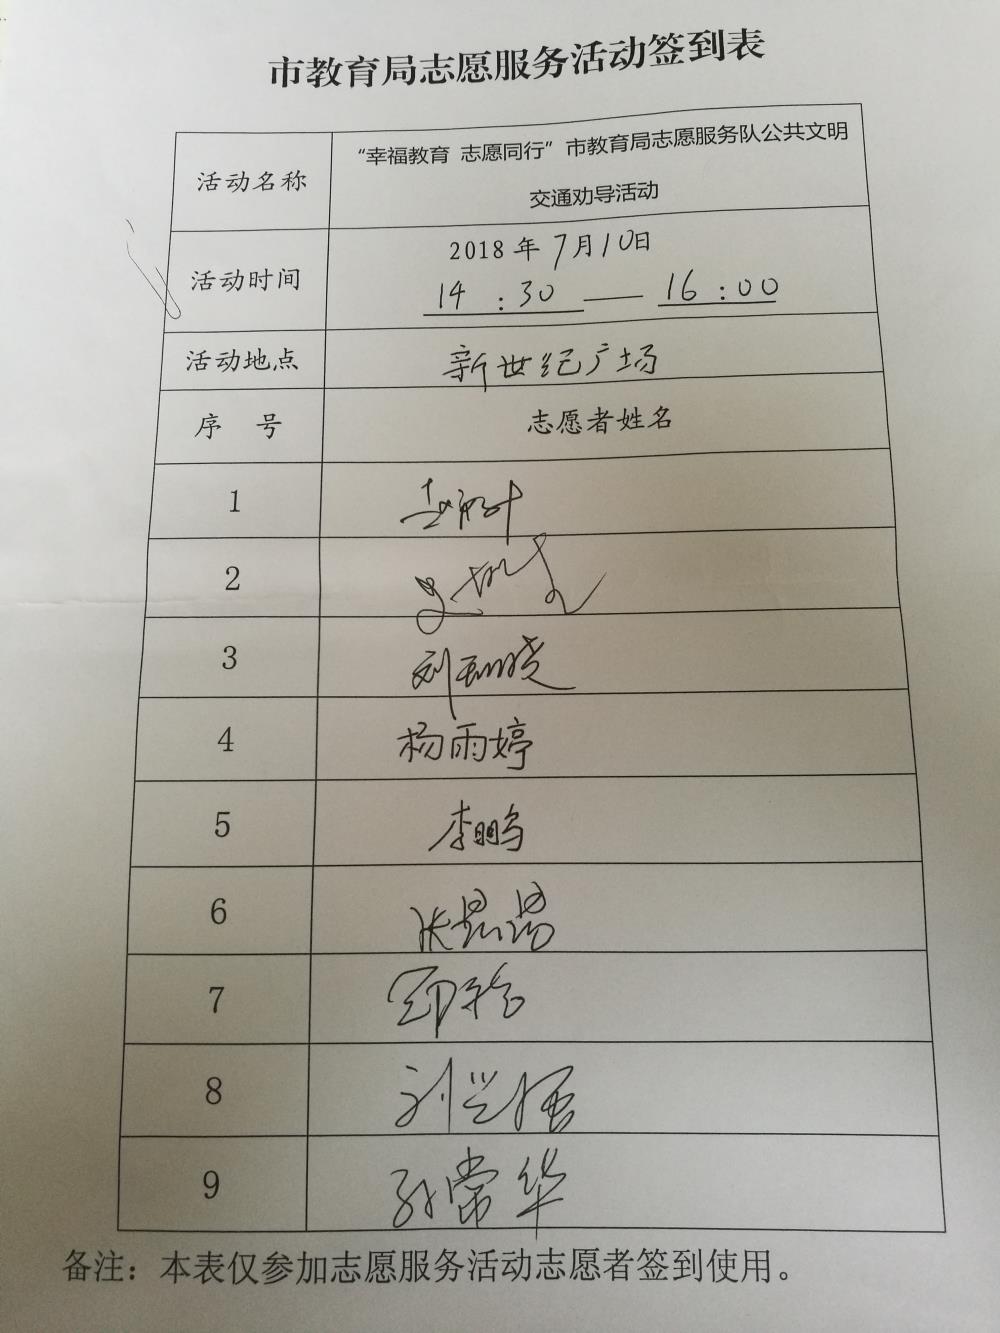 市教育局志愿服务活动签到表
活动名称
“幸福教育 志愿同行”市教育局志愿服务队公共文明
交通劝导活动
活动时间
2018年7月10日
14:30——16:00
活动地点
新世纪广场
序 号
志愿者姓名
1
2
3
刘
4
杨雨婷
5
李鹏
6
张
7
8
刘兴
9
孙常华
备注：本表仅参加志愿服务活动志愿者签到使用。